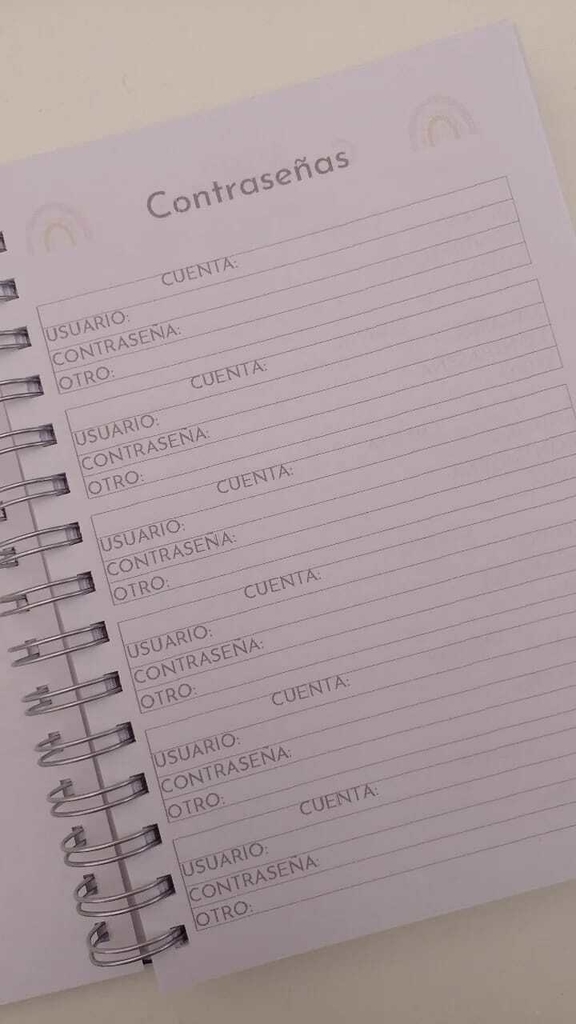 Contraseñas
CUENTA:
USUARIO:
CONTRASEÑA:
OTRO:
CUENTA:
USUARIO:
CONTRASEÑA:
OTRO:
CUENTA:
USUARIO:
CONTRASEÑA:
OTRO:
CUENTA:
USUARIO:
CONTRASEÑA:
OTRO:
CUENTA:
USUARIO:
CONTRASEÑA:
OTRO:
CUENTA:
USUARIO:
CONTRASEÑA:
OTRO: